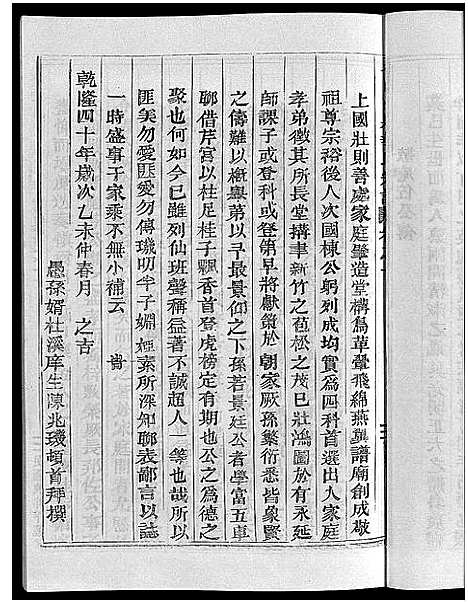 上國壯則善處家庭鳖造堂構爲革翬飛綿燕翼譜廟創成敬
祖尊宗裕後人次國棟公躬列成均實爲四科首選出人家庭
孝弟徵其所長堂搆聿新竹之苞松之茂巳壯鴻圖於有永延
師課子或登科或領第早將獻策於 朝家厥孫繁衍悉皆象賢
之儔難以槪舉第以予最景仰之下孫若景廷公者學富五車
聊借芹宮以柱足桂子飄香首登虎榜定有期也公之爲德之
聚也何如今巳雖列仙班聲稱益著不誠超人一等也哉所以
匪美勿愛匪愛勿傳璣叨半子姻婭素所深知聊表鄙言以誌
一時盛事于家乘不無小補云 峕
乾隆四十年歲次乙未仲春月 之吉
愚孫婿社溪庠生陳兆璣頓首拜撰